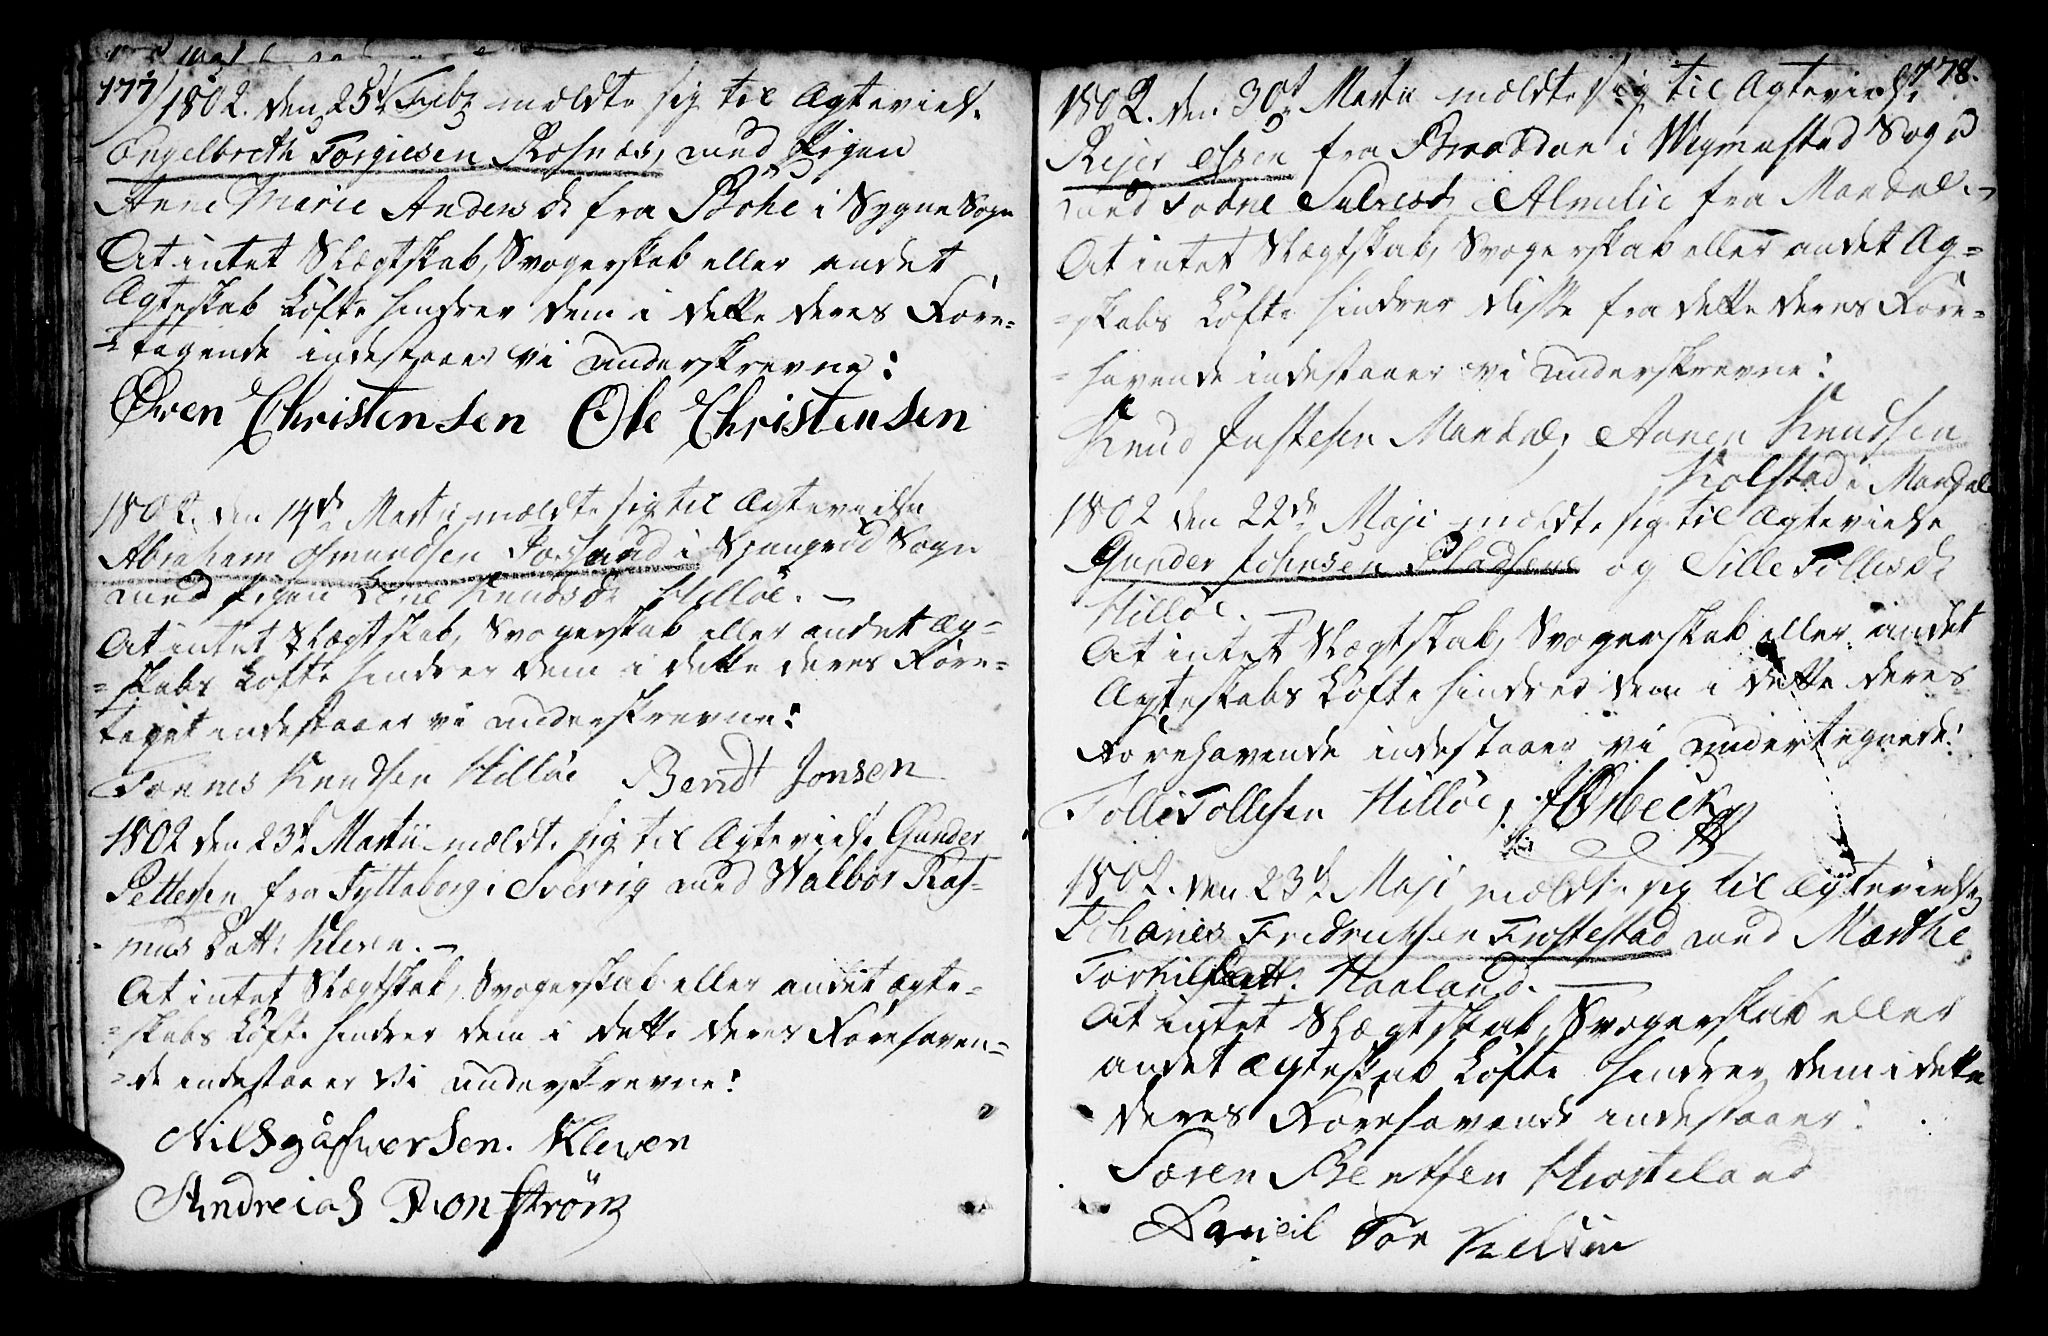 177/
1802. den 25de Febr mældte sig til Ægtevielse
Engelbreth Torgiesen Rosnæs, med Pigen
Anne Marie Anders dr fra Böhe i Sygne Sogn
At intet Slægtskab, Svogerskab eller andet
Ægteskab Löfte hindrer dem i dette deres Fore-
-tagende indestaaer vi underskrevne:
Sven Christensen Ole Christensen
1802. den 14de Martii mældte sig til Ægtevielse
Abraham Osmundsen Jaasund i Spangreid Sogn
med Pigen Lene Knuds dr Hilløe. —
At intet Slægtskab, Svogerskab eller andet Æg-
-skabs Löfte hindrer dem i dette deres Fore-
taget indestaaer vi underskrevne:
Tønnes Knudsen Hilløe Bendt Jonsen
1802 den 23de Martii mældte sig til Ægtevielse Gunder
Pettersen fra Fyttaborg i Sverrig med Walbör Ras-
mus Datt: Kleven. —
At intet Slægtskab, Svogerskab eller andet Ægte-
-skabs Löfte hindrer dem i dette deres Forehaven-
-de indestaaer vi underskrevne:
Nils Klewen
Andreias Ronström
178.
1802. den 30te Martii mældte sig til Ægtevielse
Rejer Olsen fra Braadan i Wigmestad Sogn
med Tobine Salves dr Almelie fra Mandal. —
At intet Slægtskab, Svogerskab eller andet Æg-
-skabs Löfte hindrer disse fra dette deres Fore-
-havende indestaaer vi underskrevne:
Knud Justesen Mandal, Aanen Knudsen
Holstad i Mandal
1802 den 22de Maji mældte sig til Ægtevielse
Gunder Johnsen Pladsene og Sille Tolles dr
Hilløe. —
At intet Slægtskab, Svogerskab eller andet
Ægteskabs Löfte hindrer dem i dette deres
Forehavende indestaaer vi undertegnede:
Tolle Tollesen Hilløe, Osbeck
1802. den 23de Maji mældte sig til Ægtevielse
Johanes Fredrichsen Frøstestad med Marthe
Torkilsdatt. Haaland. —
At intet Slægtskab, Svogerskab eller
andet Ægteskab Löfte hindrer dem i dette
deres Forehavende indestaaer:
Søren Bentsen
Danieil Tor Kelsen